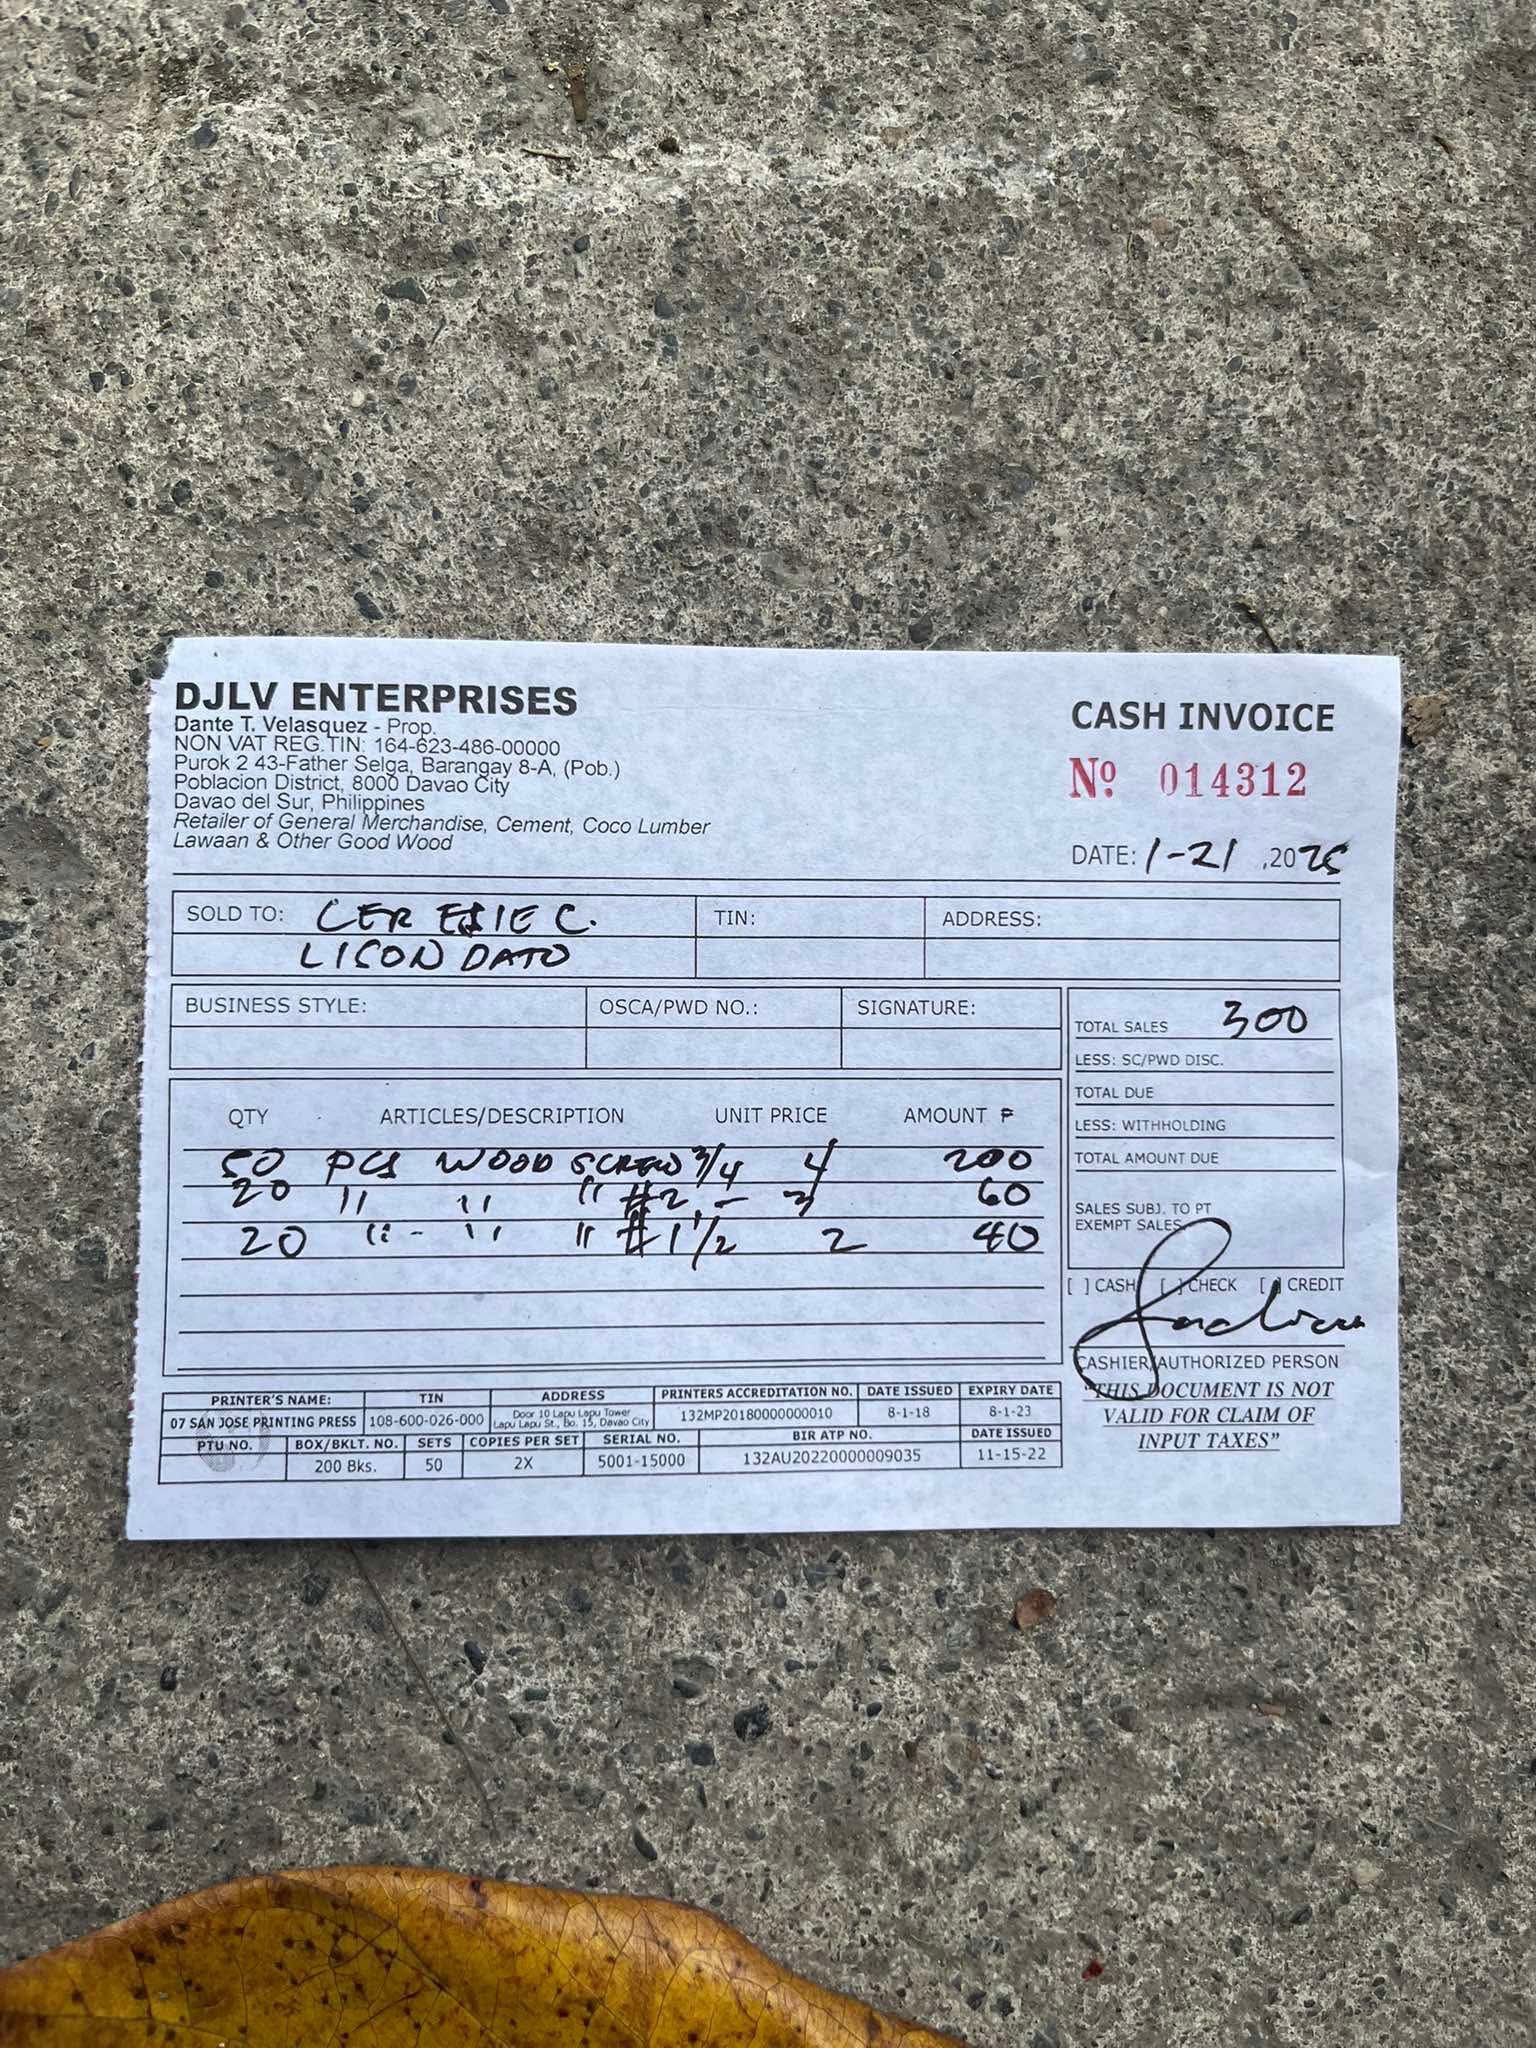 DJLV ENTERPRISES
Dante T. Velasquez - Prop.
NON VAT REG.TIN: 164-623-486-00000
Purok 2 43-Father Selga, Barangay 8-A, (Pob.)
Poblacion District, 8000 Davao City
Davao del Sur, Philippines
Retailer of General Merchandise, Cement, Coco Lumber
Lawaan & Other Good Wood
CASH INVOICE
Nº 014312
DATE: 1-21 ,2025
SOLD TO: CER ESIE C. TIN: ADDRESS:
LISONDATO
BUSINESS STYLE: OSCA/PWD NO.: SIGNATURE:
QTY ARTICLES/DESCRIPTION UNIT PRICE AMOUNT ₱
50 PCS WOOD SCREW 3/4 4/ 200
20 " " " #2 - 3/ 60
20 " - " " #1 1/2 2 40
TOTAL SALES 300
LESS: SC/PWD DISC.
TOTAL DUE
LESS: WITHHOLDING
TOTAL AMOUNT DUE
SALES SUBJ. TO PT
EXEMPT SALES
[ ] CASH [ ] CHECK [ ] CREDIT
CASHIER/AUTHORIZED PERSON
"THIS DOCUMENT IS NOT
VALID FOR CLAIM OF
INPUT TAXES"
PRINTER'S NAME: TIN ADDRESS PRINTERS ACCREDITATION NO. DATE ISSUED EXPIRY DATE
07 SAN JOSE PRINTING PRESS 108-600-026-000 Door 10 Lapu Lapu Tower Lapu Lapu St., Bo. 15, Davao City 132MP20180000000010 8-1-18 8-1-23
PTU NO. BOX/BKLT. NO. SETS COPIES PER SET SERIAL NO. BIR ATP NO. DATE ISSUED
200 Bks. 50 2X 5001-15000 132AU20220000009035 11-15-22